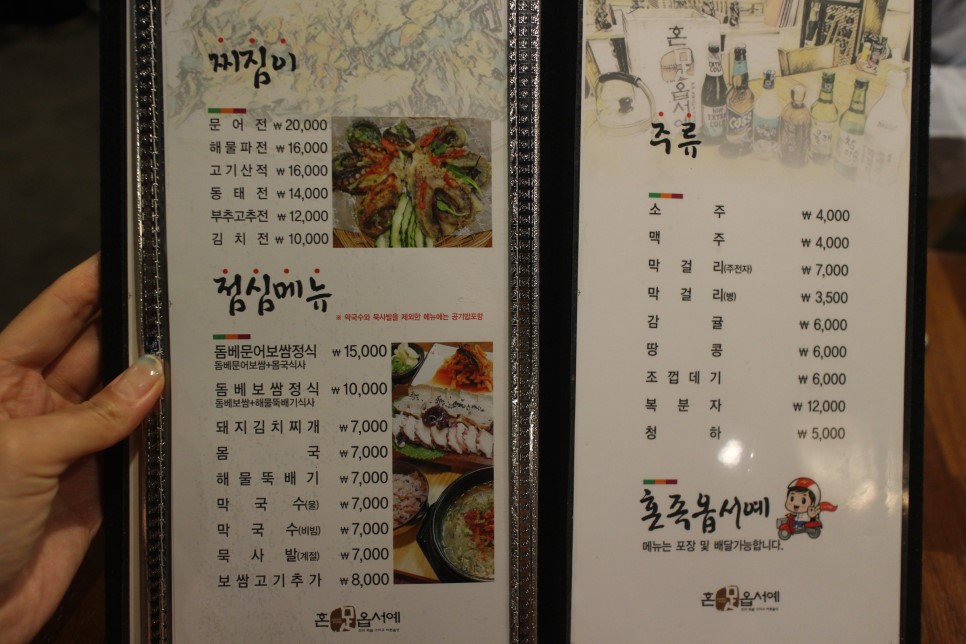 찌짐이
문어전 ₩20,000
해물파전 ₩16,000
고기산적 ₩16,000
동태전 ₩14,000
부추고추전 ₩12,000
김치전 ₩10,000
점심메뉴
※ 막국수와 묵사발을 제외한 메뉴에는 공기밥포함
돔베문어보쌈정식 ₩15,000
돔베문어보쌈+몸국식사
돔베보쌈정식 ₩10,000
돔베보쌈+해물뚝배기식사
돼지김치찌개 ₩7,000
몸국 ₩7,000
해물뚝배기 ₩7,000
막국수(물) ₩7,000
막국수(비빔) ₩7,000
묵사발(계절) ₩7,000
보쌈고기추가 ₩8,000
혼족옵서예
혼
옵서예
주류
소주 ₩4,000
맥주 ₩4,000
막걸리(주전자) ₩7,000
막걸리(병) ₩3,500
감귤 ₩6,000
땅콩 ₩6,000
조껍데기 ₩6,000
복분자 ₩12,000
청하 ₩5,000
혼족옵서예
메뉴는 포장 및 배달가능합니다.
혼족옵서예